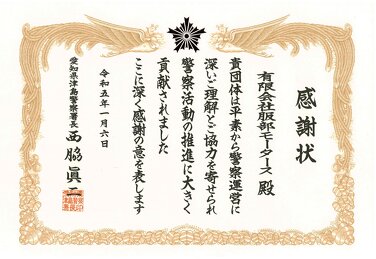 感謝状
有限会社服部モータース 殿
貴団体は平素から警察運営に
深いご理解とご協力を寄せられ
警察活動の推進に大きく
貢献されました
ここに深く感謝の意を表します
令和五年一月六日
愛知県津島警察署長 西脇眞二